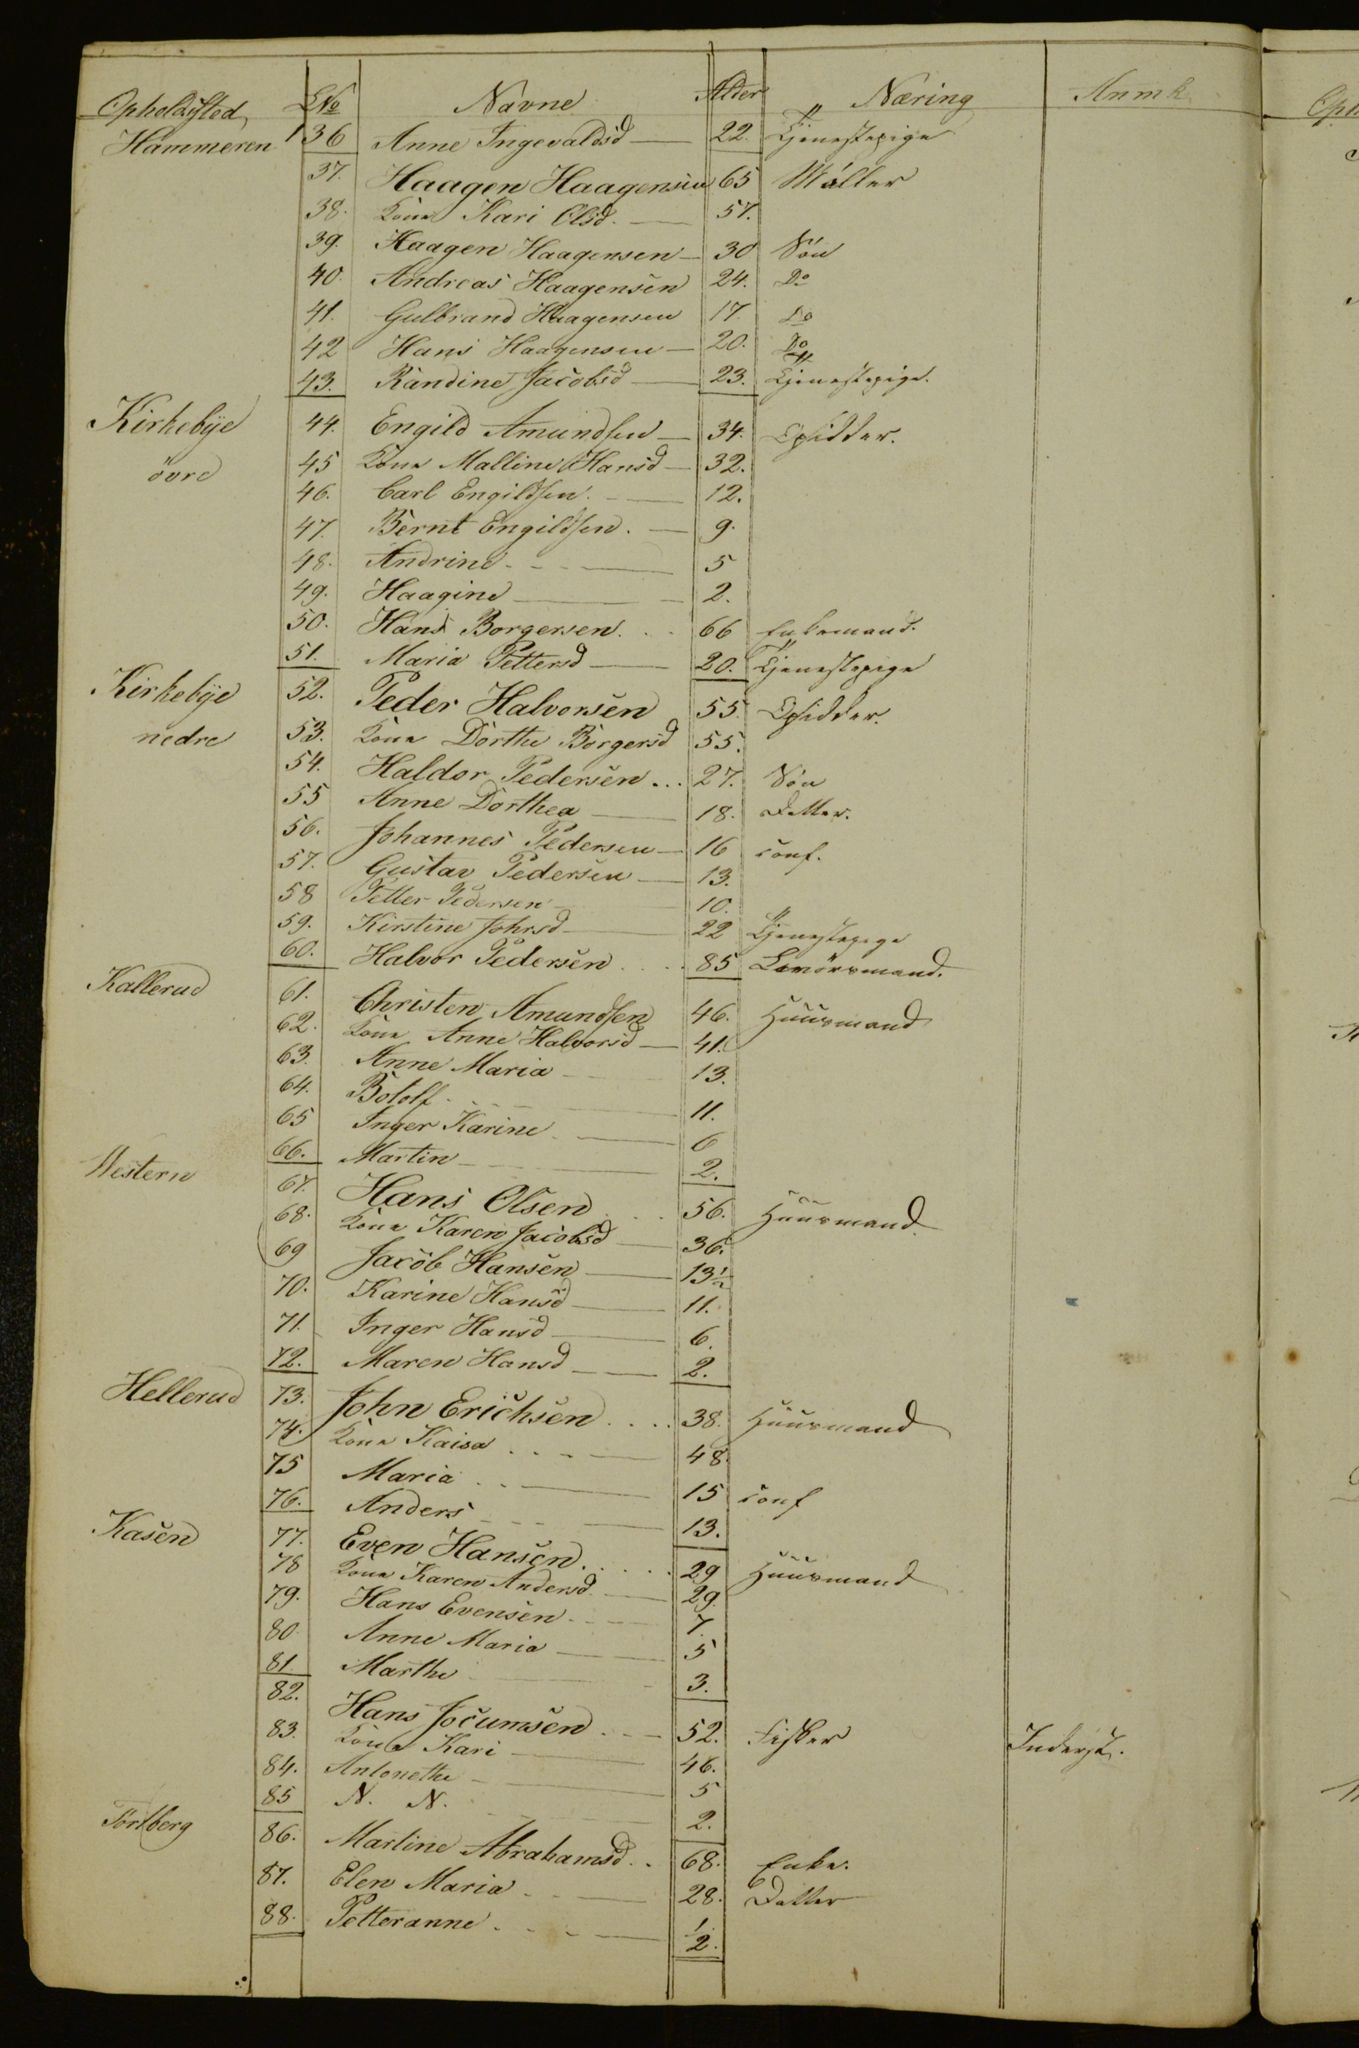 Opholdsted LNo Navne Alder Næring Anmk
Hammeren 136 Anne Ingevaldsd 22. Tjenestepige
37. Haagen Haagensen 65 Möller
38. Kone Kari Olsd. 57.
39. Haagen Haagensen 30 Sön
40. Andreas Haagensen 24. Do
41. Gulbrand Haagensen 17. Do
42 Hans Haagensen 20. Do
43. Randine Jacobsd 23. Tjenestepige.
Kirkebÿe 44. Engild Amundsen 34. Opsidder.
övre 45 Kone Malline Hansd 32.
46. Carl Engildsen. 12.
47. Bernt Engildsen. 9.
48. Andrine 5
49. Haagine 2.
50. Hans Borgersen. 66 Enkemand.
51. Maria Pettersd 20. Tjenestepige
Kirkebÿe 52. Peder Halvorsen 55. Opsidder.
nedre 53. Kone Dorthe Borgersd 55.
54. Haldor Pedersen 27. Sön
55 Anne Dorthea 18. Datter.
56. Johannes Pedersen 16 conf.
57. Gustav Pedersen 13.
58 Petter Pedersen 10.
59. Kirstine Johrsd 22 Tjenestepige
60. Halvor Pedersen 85
Kallerud 61. Christen Amundsen 46. Huusmand
62. Kone Anne Halvorsd 41.
63. Anne Maria 13.
64. Botolf 11.
65 Inger Karine 6
66. Martin 2.
Western 67. Hans Olsen 56. Huusmand
68. Kone Karen Jacobsd 36.
69 Jacob Hansen 13½
70. Karine Hansd 11.
71. Inger Hansd 6.
72. Maren Hansd 2.
Hellerud 73. John Erichsen 38. Huusmand
74. Kone Kaisa 48.
75 Maria 15 conf
76. Anders 13.
Kasen 77. Even Hansen 29 Huusmand
78 Kone Karen Andersd 29.
79. Hans Evensen 7.
80. Anne Maria 5
81. Marthe 3.
82. Hans Jocumsen 52. Fisker Inderst.
83. Kone Kari 46.
84. Antonethe 5
85 N. N. 2.
Törtberg 86. Martine Abrahamsd 68. Enke.
87. Elen Maria 28. Datter
88. Petteranne ½.